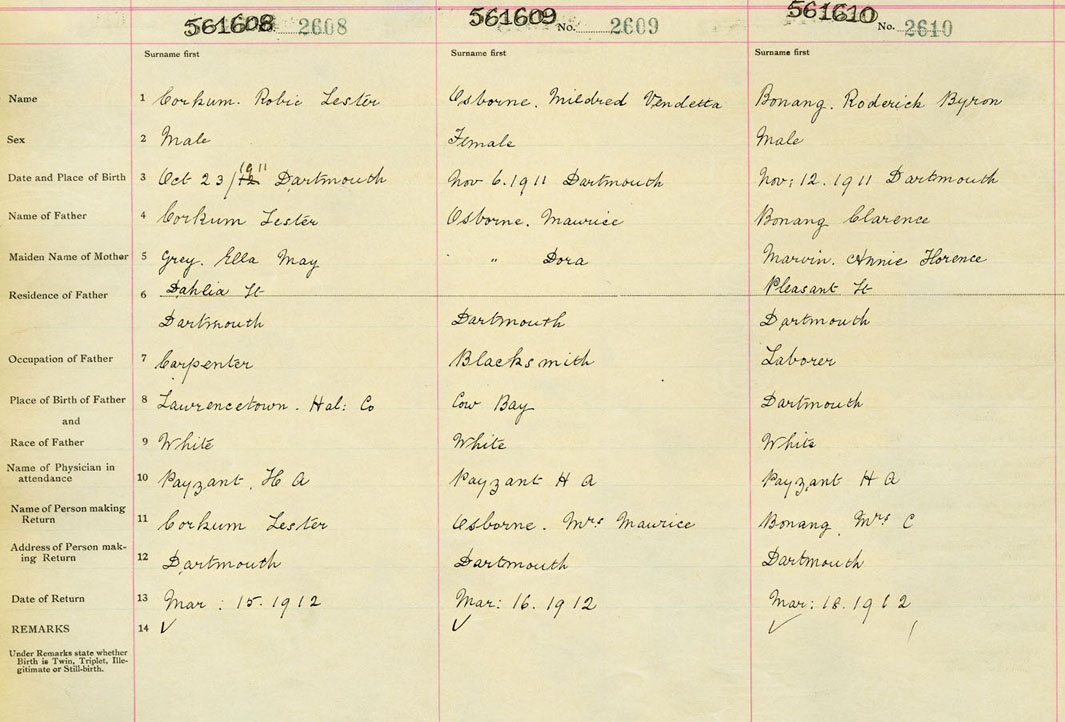 561608 2608 561609 No. 2609 561610 No. 2610
Surname first Surname first Surname first
Name 1 Corkum. Robie Lester Osborne. Mildred Vendetta Bonang. Roderick Byron
Sex 2 Male Female Male
Date and Place of Birth 3 Oct 23/12 1911 Dartmouth Nov 6.1911 Dartmouth Nov; 12.1911 Dartmouth
Name of Father 4 Corkum Lester Osborne. Maurice Bonang Clarence
Maiden Name of Mother 5 Grey. Ella May " Dora Marvin. Annie Florence
Residence of Father 6 Dahlia St Pleasant St
Dartmouth Dartmouth Dartmouth
Occupation of Father 7 Carpenter Blacksmith Laborer
Place of Birth of Father 8 Lawrencetown. Hal: Co Cow Bay Dartmouth
and
Race of Father 9 White White White
Name of Physician in
attendance 10 Payzant. H A Payzant H A Payzant H A
Name of Person making
Return 11 Corkum Lester Osborne. Mrs Maurice Bonang Mrs C
Address of Person mak-
ing Return 12 Dartmouth Dartmouth Dartmouth
Date of Return 13 Mar: 15.1912 Mar: 16.1912 Mar: 18.1912
REMARKS 14 ✓ ✓ ✓
Under Remarks state whether
Birth is Twin, Triplet, Ille-
gitimate or Still-birth.